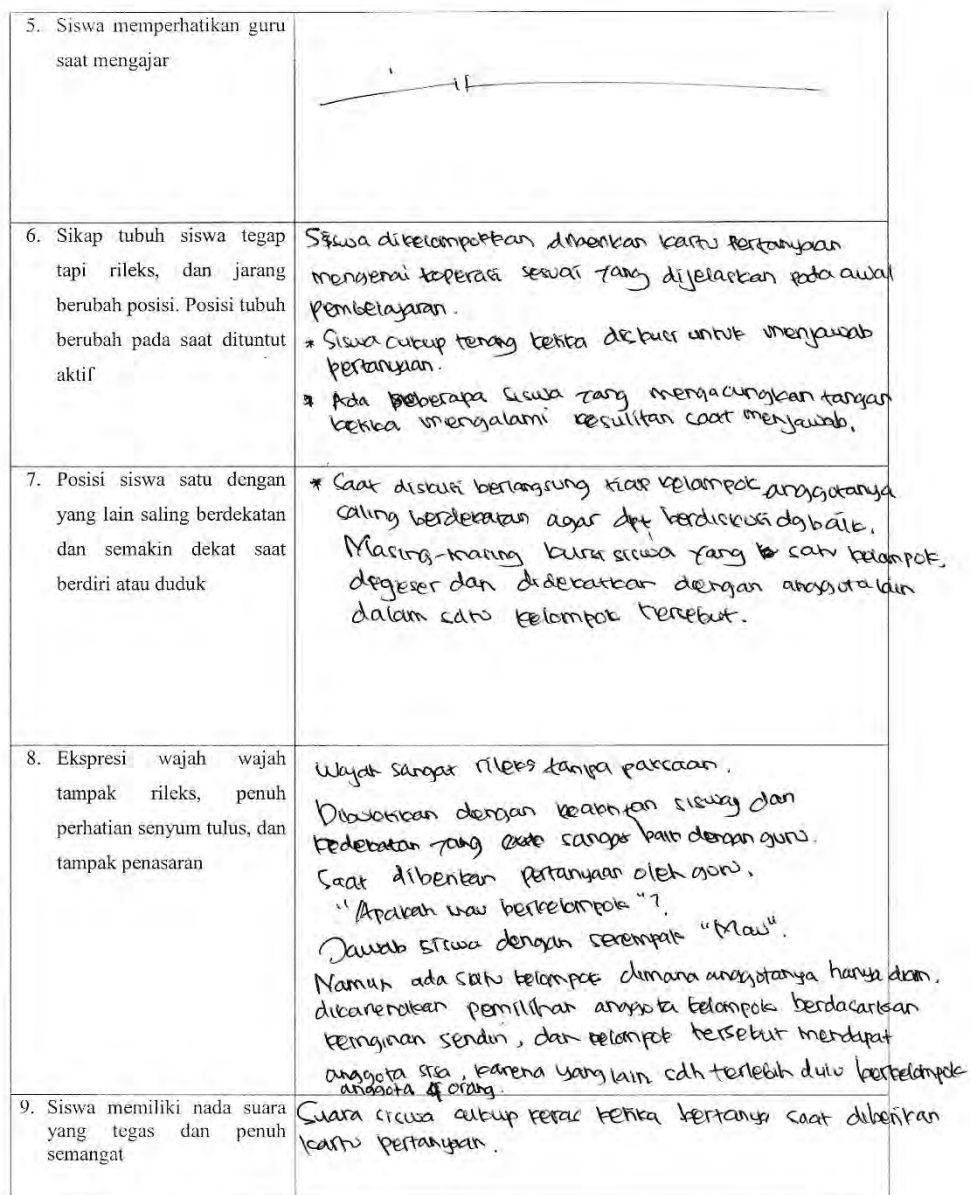 5. Siswa memperhatikan guru
saat mengajar
6. Sikap tubuh siswa tegap
tapi rileks, dan jarang
berubah posisi. Posisi tubuh
berubah pada saat dituntut
aktif
Siswa dikelompokkan diberikan kartu Pertanyaan
mengenai koperasi sesuai yang dijelaskan pada awal
Pembelajaran.
* Siswa cukup tenang ketika diskusi untuk menjawab
pertanyaan.
* Ada beberapa siswa yang mengacungkan tangan
ketika mengalami kesulitan saat menjawab.
7. Posisi siswa satu dengan
yang lain saling berdekatan
dan semakin dekat saat
berdiri atau duduk
* Saat diskusi berlangsung tiap kelompok anggotanya
saling berdekatan agar dpt berdiskusi dg baik.
Masing-masing kursi siswa yang satu kelompok,
digeser dan didekatkan dengan anggota lain
dalam satu kelompok tersebut.
8. Ekspresi wajah wajah
tampak rileks, penuh
perhatian senyum tulus, dan
tampak penasaran
Wajah sangat rileks tanpa paksaan.
Dibuktikan dengan keaktifan siswa dan
kedekatan yang sangat baik dengan guru.
Saat diberikan pertanyaan oleh guru,
"Apakah mau berkelompok"?
Jawab siswa dengan serempak "Mau".
Namun ada satu kelompok dimana anggotanya hanya diam.
dikarenakan pemilihan anggota kelompok berdasarkan
keinginan sendiri, dan kelompok tersebut mendapat
anggota sisa, karena yang lain sdh terlebih dulu berkelompok
anggota 4 orang.
9. Siswa memiliki nada suara
yang tegas dan penuh
semangat
Suara siswa cukup keras ketika bertanya saat diberikan
kartu pertanyaan.